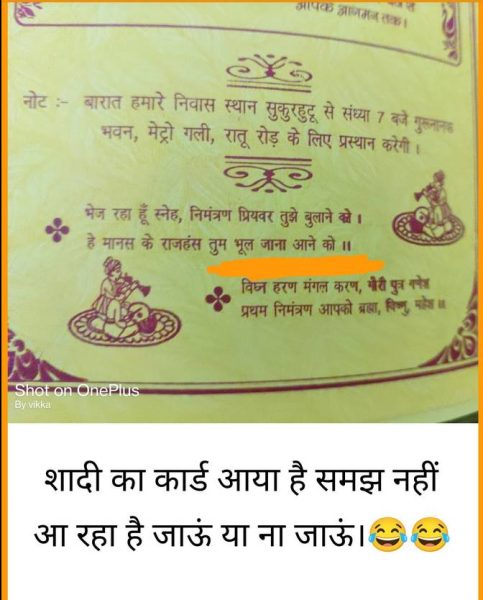 आपके आगमन तक।
नोट :- बारात हमारे निवास स्थान सुकुरहुटू से संध्या 7 बजे गुरूनानक
भवन, मेट्रो गली, रातू रोड़ के लिए प्रस्थान करेगी ।
भेज रहा हूँ स्नेह, निमंत्रण प्रियवर तुझे बुलाने को ।
हे मानस के राजहंस तुम भूल जाना आने को ॥
विघ्न हरण मंगल करण, गौरी पुत्र गणेश
प्रथम निमंत्रण आपको ब्रह्मा, विष्णु, महेश ॥
Shot on OnePlus
By vikka
शादी का कार्ड आया है समझ नहीं
आ रहा है जाऊं या ना जाऊं।😂😂